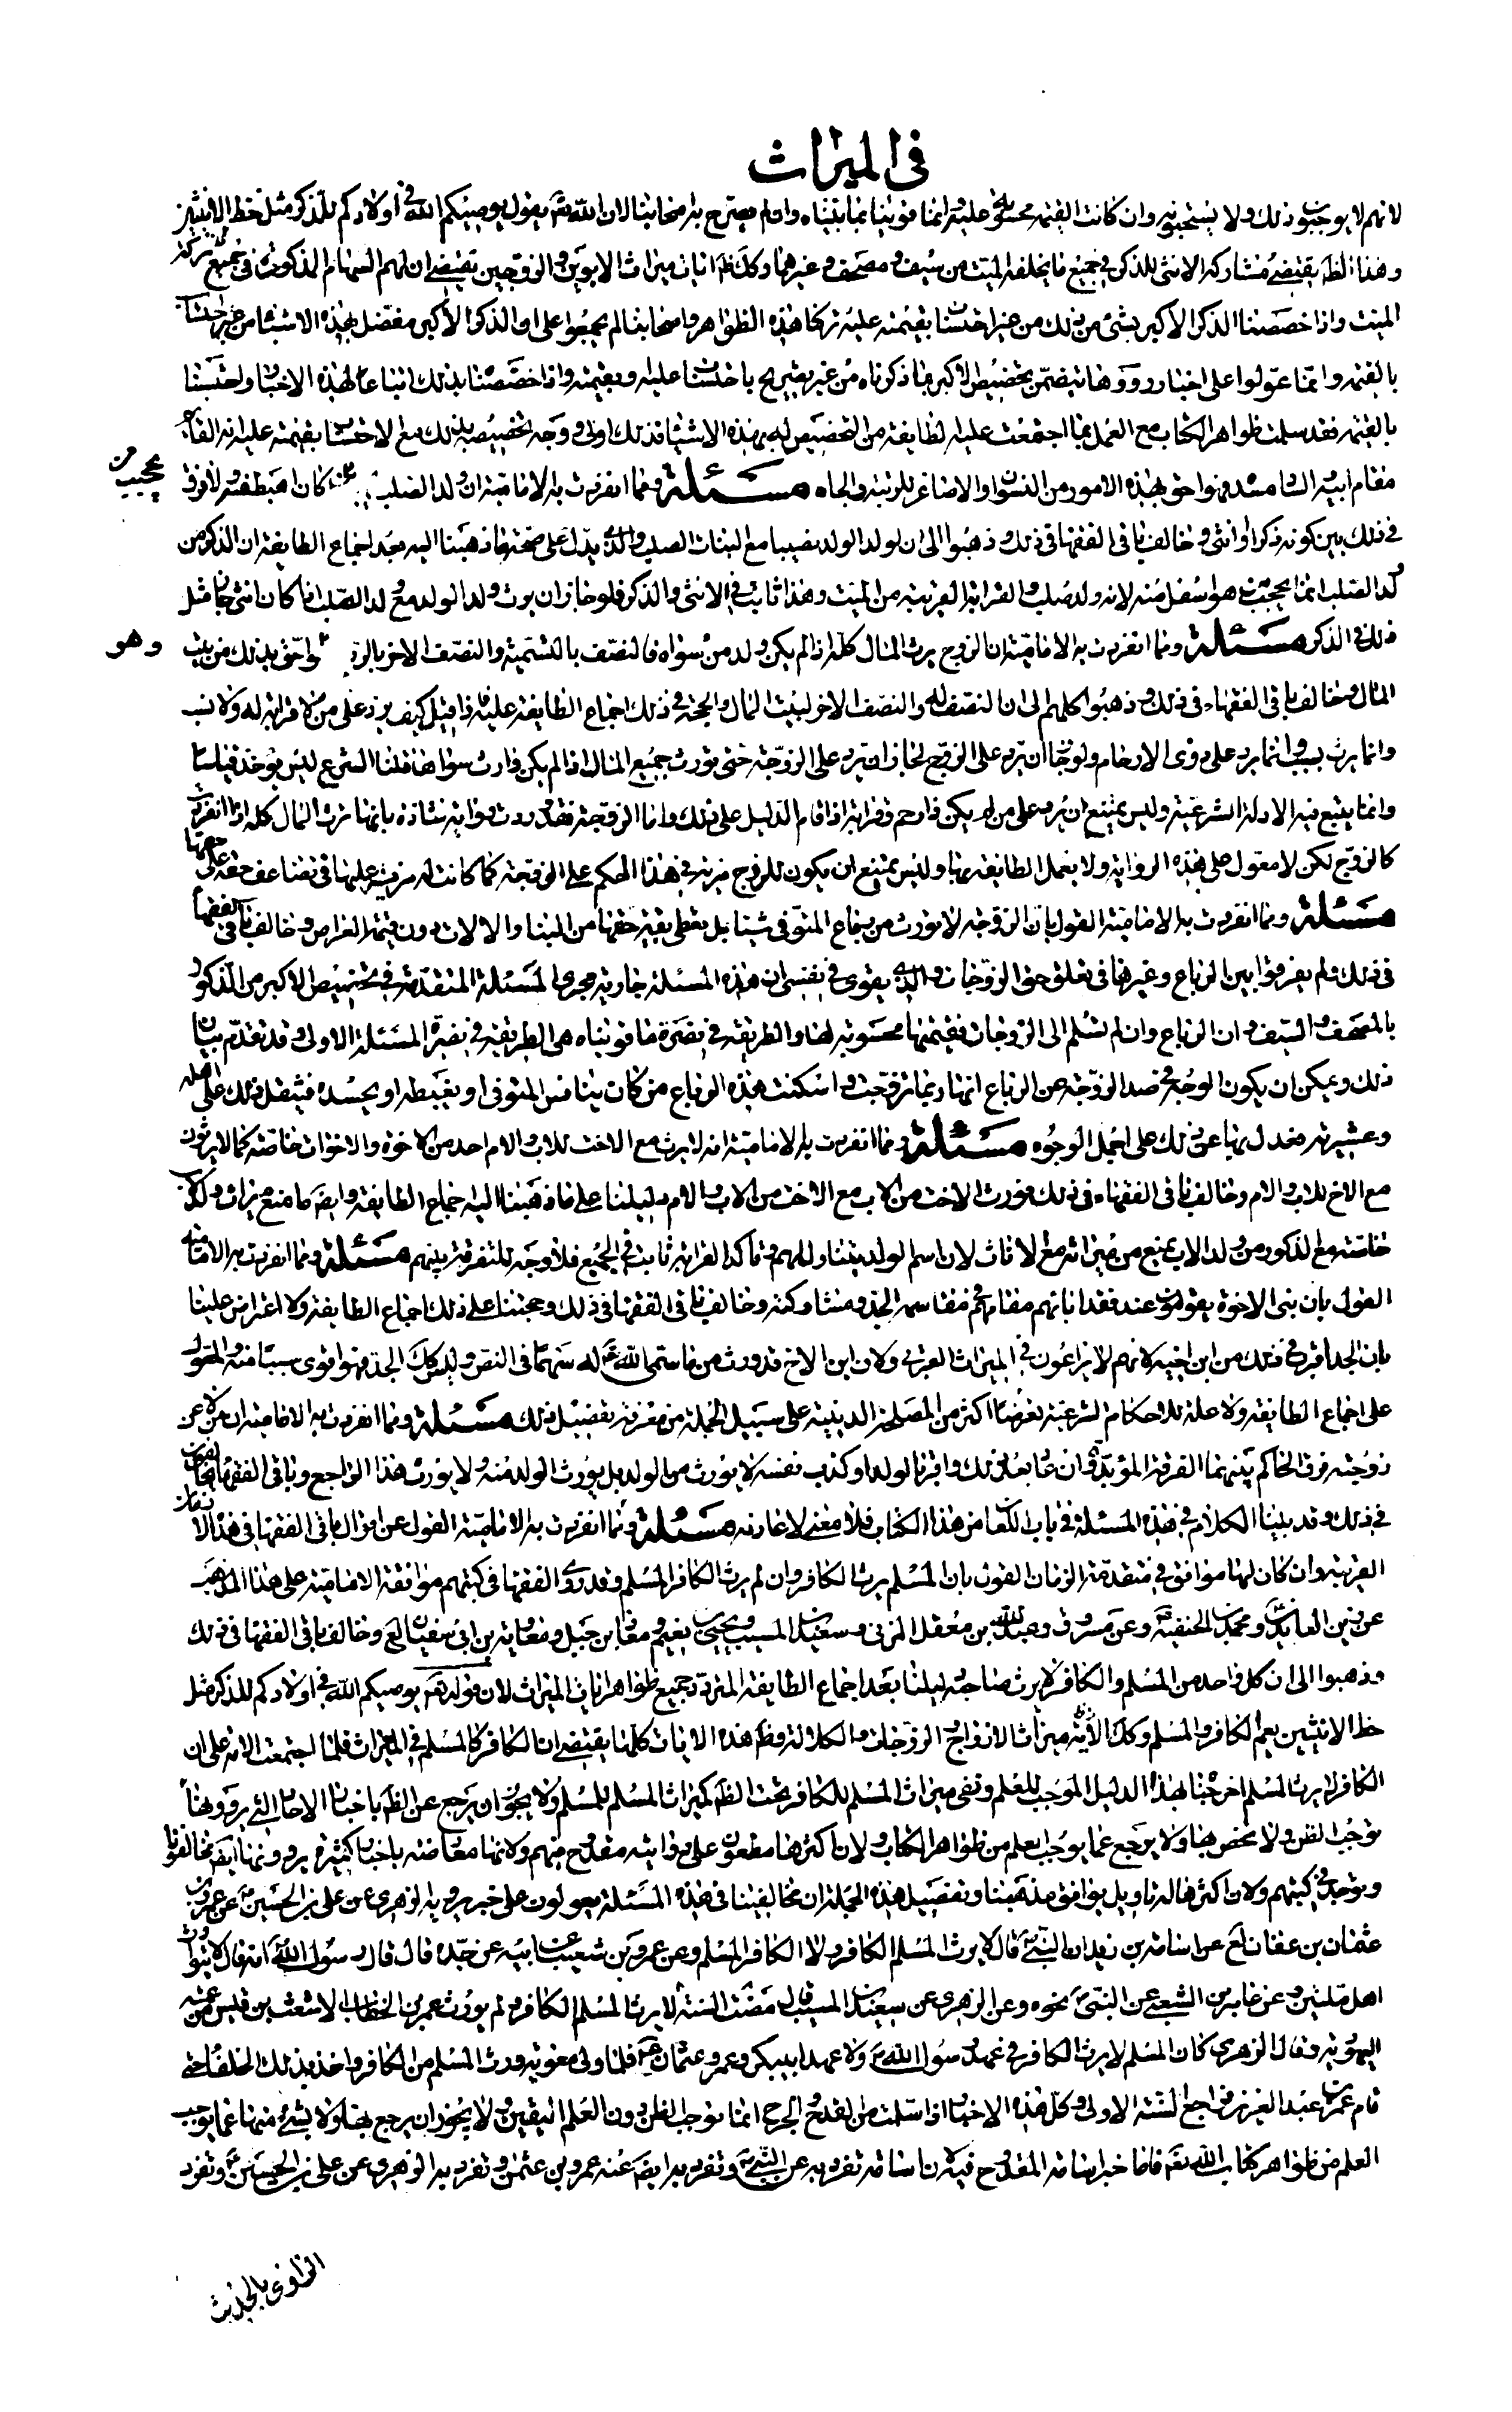 في الميراث
لانهم لا يوجبون ذلك ولا يستحبونه وان كانت القيمة محسوبة عليه وانما قوينا ما بيناه وان لم يصرح به اصحابنا لان الله تعالى يقول يوصيكم الله في اولادكم للذكر مثل حظ الانثيين
وهذا الظ يقتضي مشاركة الانثى للذكر في جميع ما يخلفه الميت من سيف ومصحف وغيرهما وكك ظ ايات ميراث الابوين والزوجين يقتضي ان لهم السهام المذكورة في جميع تركة
الميت واذا خصصنا الذكر الاكبر بشئ من ذلك من غير احتساب بقيمته عليه تركنا هذه الظواهر واصحابنا لم يجمعوا على ان الذكر الاكبر مفضل بهذه الاشياء من غير احتساب
بالقيمة وانما عولوا على اخبار رووها تتضمن تخصيص الاكبر بما ذكرناه من غير تصريح باحتساب عليه وبقيمته واذا خصصناه بذلك اتباعا لهذه الاخبار واحتسبنا
بالقيمة فقد سلمت ظواهر الكتاب مع العمل بما اجتمعت عليه الطايفة من التخصيص له بهذه الاشياء فذلك اولى ووجه تخصيصه بذلك مع الاحتساب بقيمته عليه انه القايم
مقام ابيه الساد مسده فهو احق بهذه الامور من النسوان والاصاغر للرتبة والجاه مسئلة ومما انفردت به الامامية ان ولد الصلب يحجب من كان اهبط منه ولا فرق
في ذلك بين كونه ذكرا او انثى وخالف باقي الفقهاء في ذلك وذهبوا الى ان لولد الولد نصيبا مع البنات الصلب والذي يدل على صحة ما ذهبنا اليه بعد اجماع الطايفة ان الذكر من
ولد الصلب انما يحجب من هو اسفل منه لانه ولد صلب والقرابة القريبة من الميت وهذا ثابت في الانثى والذكر فلو جاز ان يرث ولد الولد مع ولد الصلب اذا كان انثى جاز مثل
ذلك في الذكر مسئلة ومما انفردت به الامامية ان الزوج يرث المال كله اذا لم يكن ولد من سواه فالنصف بالتسمية والنصف الاخر بالرد وهو احق بذلك من بيت
المال وخالف باقي الفقهاء في ذلك وذهبوا كلهم الى ان النصف له والنصف الاخر لبيت المال والحجة في ذلك اجماع الطايفة عليه فاذا قيل كيف يرد على من لا قرابة له ولا نسب
وانما يرث بسبب وانما يرد على ذوى الارحام ولو جاز ان يرد على الزوج لجاز ان يرد على الزوجة حتى تورث جميع المال اذا لم يكن وارث سواها قلنا الشرع ليس يؤخذ قياسا
وانما يتبع فيه الادلة الشرعية وليس يمتنع ان يرد على من لم يكن ذا رحم وقرابة اذا قام الدليل على ذلك واما الزوجة فقد وردت رواية شاذة بانها ترث المال كله اذا انفردت
كالزوج لكن لا معول على هذه الرواية ولا يعمل الطايفة بها وليس يمتنع ان يكون للزوج مزية في هذا الحكم على الزوجة كما كانت له مزية عليها في تضاعف حقه على حقها
مسئلة ومما انفردت به الامامية القول بان الزوجة لا تورث من رباع المتوفى شيئا بل تعطى بقيمة حقها من البناء والالات دون قيمة العراص وخالف باقي الفقهاء
في ذلك ولم يفرقوا بين الرباع وغيرها في تعلق حق الزوجات والذي يقوى في نفسي ان هذه المسئلة جارية مجرى المسئلة المتقدمة في تخصيص الاكبر من الذكور
بالمصحف والسيف وان الرباع وان لم تسلم الى الزوجات فقيمتها محسوبة لها والطريقة في نصرة ما قويناه هي الطريقة في نصرة المسئلة الاولى وقد تقدم بيان
ذلك ويمكن ان يكون الوجه في صد الزوجة عن الرباع انها ربما تزوجت واسكنت هذه الرباع من كان ينافس المتوفى او يغبطه او يحسده فيثقل ذلك على اهله
وعشيرته فعدل بها عن ذلك على اجمل الوجوه مسئلة ومما انفردت به الامامية انه لا يرث مع الاخت للاب والام احد من الاخوة والاخوات خاصة كما لا يرثون
مع الاخ للاب والام وخالف باقي الفقهاء في ذلك فورث الاخت من الاب مع الاخت من الاب والام دليلنا على ما ذهبنا اليه اجماع الطايفة وايض ما منع ميراث ولد الاب
خاصة مع الذكور من ولد الاب يمنع من ميراثه مع الاناث لان اسم الولد يتناولهم وتاكد القرابة ثابت في الجميع فلا وجه للتفرقة بينهم مسئلة ومما انفردت به الامامية
القول بان بنى الاخوة يقومون عند فقد ابائهم مقامهم في مقاسمة الجد ومشاركته وخالف باقي الفقهاء في ذلك وحجتنا على ذلك اجماع الطايفة ولا اعتراض علينا
بان الجد اقرب في ذلك من ابن اخيه لانهم لا يراعون في الميراث القربى ولان ابن الاخ قد ورث من سماه الله تعالى له سهما في النص وليس كك الجد فهو اقوى سببا منه والمعول
على اجماع الطايفة ولا علة للاحكام الشرعية نعرفها اكثر من المصلحة الدينية على سبيل الجملة من معرفة تفصيل ذلك مسئلة ومما انفردت به الامامية ان من لاعن
زوجته فرق الحاكم بينهما الفرقة المؤبدة وان عاد بعد ذلك واقر بالولد او كذب نفسه لا يورث من الولد بل يورث الولد منه ولا يورث هذا الراجع وباقي الفقهاء يخالفون
في ذلك وقد بينا الكلام في هذه المسئلة في باب اللعان من هذا الكتاب فلا معنى لاعادته مسئلة ومما انفردت به الامامية القول عن اقوال باقي الفقهاء في هذه الازمان
القريبة وان كان لها موافق في متقدمة الزمان القول بان المسلم يرث الكافر وان لم يرث الكافر المسلم وقد روى الفقهاء في كتبهم موافقة الامامية على هذا المذهب
عن زين العابدين ومحمد بن الحنفية وعن مسروق وعبد الله بن معقل المزنى وسعيد بن المسيب ويحيى بن يعمر ومعاذ بن جبل ومعاوية بن ابى سفيان وخالف باقي الفقهاء في ذلك
وذهبوا الى ان كل واحد من المسلم والكافر لا يرث صاحبه دليلنا بعد اجماع الطايفة المتردد جميع ظواهر ايات الميراث لان قوله تعالى يوصيكم الله في اولادكم للذكر مثل
حظ الانثيين يعم الكافر والمسلم وكك اية ميراث الازواج والزوجات والكلالة وظ هذه الايات كلها يقتضي ان الكافر كالمسلم في الميراث فلما اجتمعت الامة على ان
الكافر لا يرث المسلم اخرجناه بهذا الدليل الموجب للعلم ونفى ميراث المسلم للكافر تحت الظ كميراث المسلم للمسلم ولا يجوز ان يرجع عن الظ باخبار الاحاد التي يروونها
توجب الظن ولا يخص بها ولا يرجع عما يوجب العلم من ظواهر الكتاب ولان اكثرها مطعون على رواته مقدوح فيهم ولانها معارضة باخبار كثيرة يرويها ايض مخالفونا
وتوجد في كتبهم ولان اكثرها له تاويل يوافق مذهبنا وتفصيل هذه الجملة ان مخالفينا في هذه المسئلة يعولون على خبر يرويه الزهري عن على بن الحسين عن عمرو بن
عثمان بن عفان عن اسامة بن زيد ان النبي قال لا يرث المسلم الكافر ولا الكافر المسلم وعن عمرو بن شعيب عن ابيه عن جده قال قال رسول الله انه قال لا يتوارث
اهل ملتين وعن عامر بن الشعبي عن النبي نحوه وعن الزهرى عن سعيد بن المسيب قال مضت السنة لا يرث المسلم الكافر ولم يورث عمر بن الخطاب الاشعث بن قيس من عمته
اليهودية وقال الزهرى كان المسلم لا يرث الكافر في عهد رسول الله ولا عهد ابيبكر وعمر وعثمان فلما ولى معوية ورث المسلم من الكافر واخذ بذلك الخلفاء حتى
قام عمر بن عبد العزيز فراجع السنة الاولى وكل هذه الاخبار اذا سلمت من القدح والجرح انما توجب الظن دون العلم اليقين ولا يجوز ان يرجع بها ولا بشئ منها عما يوجب
العلم من ظواهر كتاب الله تعالى فاما خبر اسامة المقدوح فيه لان اسامة تفرد به عن النبي وتفرد به ايض عنه عمرو بن عثمن وتفرد به الزهرى عن على بن الحسين وتفرد
الراوى بالحديث